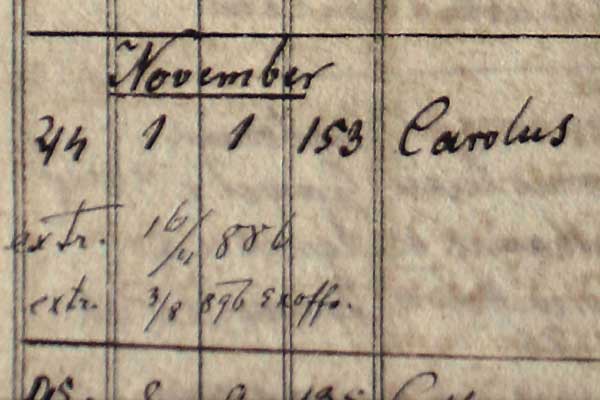 November
44 1 1 153 Carolus
extr. 16/4 886
extr. 3/8 896 Ex offo.